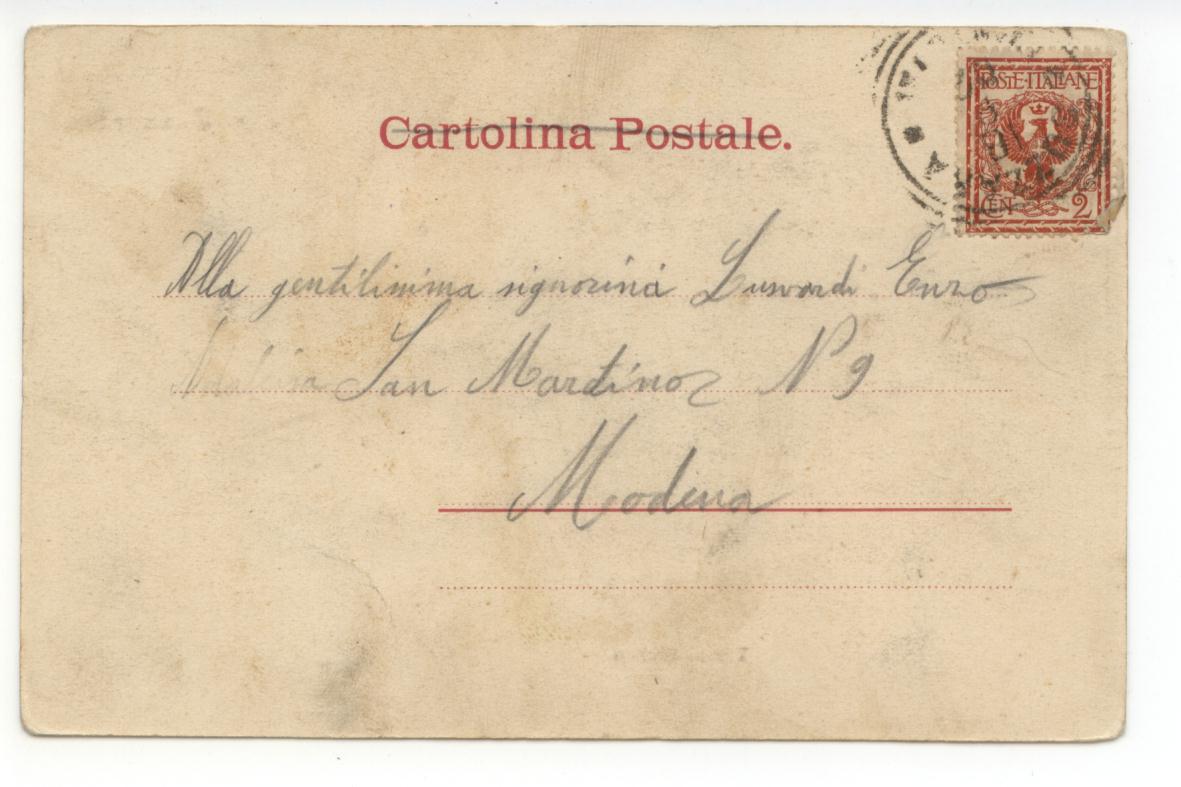 Cartolina Postale.
POSTE·ITALIANE
CEN 2
Alla gentilissima signorina Lusvardi Enzo
San Martino N 9
Modena